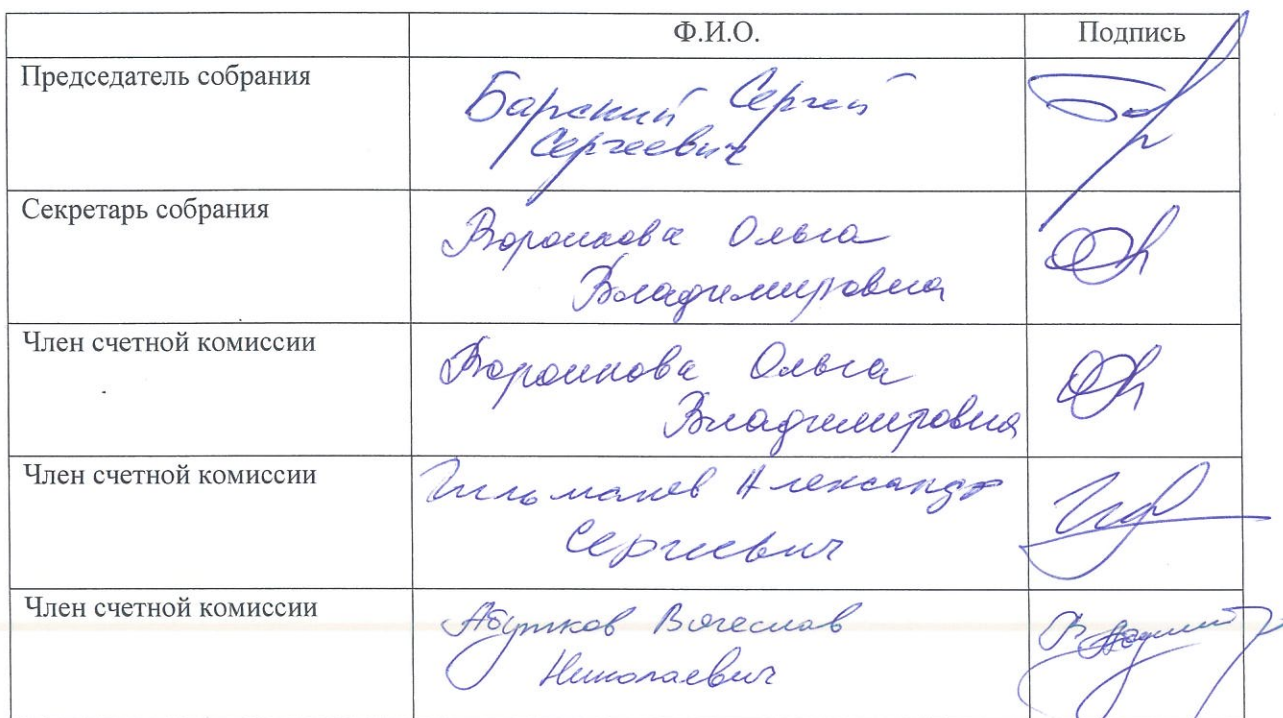 Ф.И.О. Подпись
Председатель собрания Барский Сергей
Сергеевич
Секретарь собрания Воронкова Ольга
Владимировна
Член счетной комиссии Воронкова Ольга
Владимировна
Член счетной комиссии Александр
Сергеевич
Член счетной комиссии Абутков Вячеслав
Николаевич